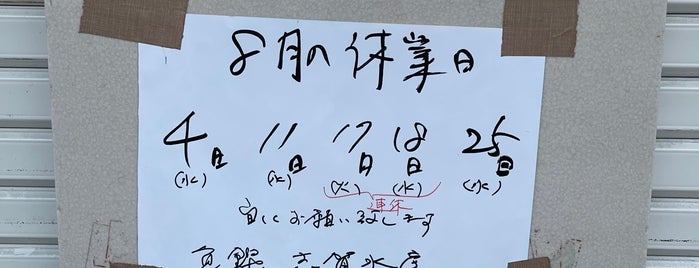 8月の休業日
4日 11日 17日 18日 25日
(水) (水) (火) (水) (水)
連休
宜しくお願い致します